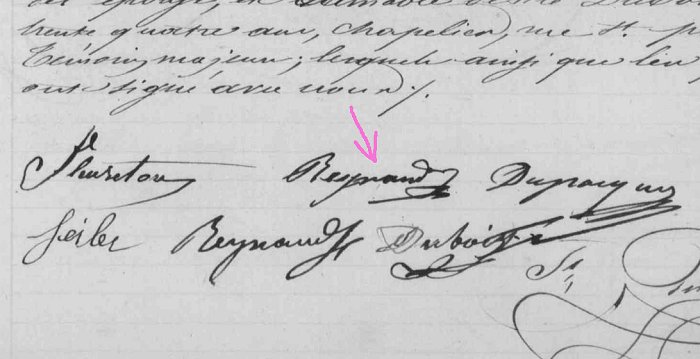 trente quatre ans, chapelier, rue St.
Témoins majeurs; lesquels ainsi que les
ont signé avec nous
Fleureton Reynaud Dupasquier
Seiler Reynaud Dubois